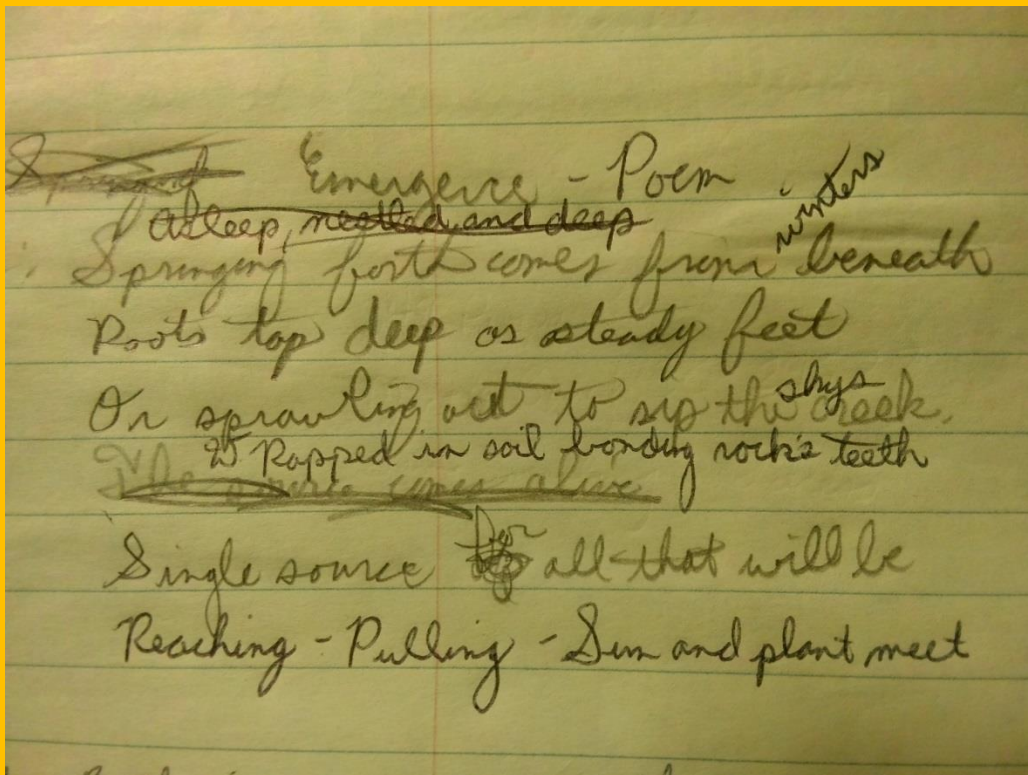 Emergence - Poem
Asleep, nestled and deep
winters
Springing forth comes from beneath
Roots tap deep as steady feet
skys
Or sprawling out to sip the creek.
Wrapped in soil bonding rock's teeth
The source comes alive
Single source for all that will be
Reaching - Pulling - Sun and plant meet